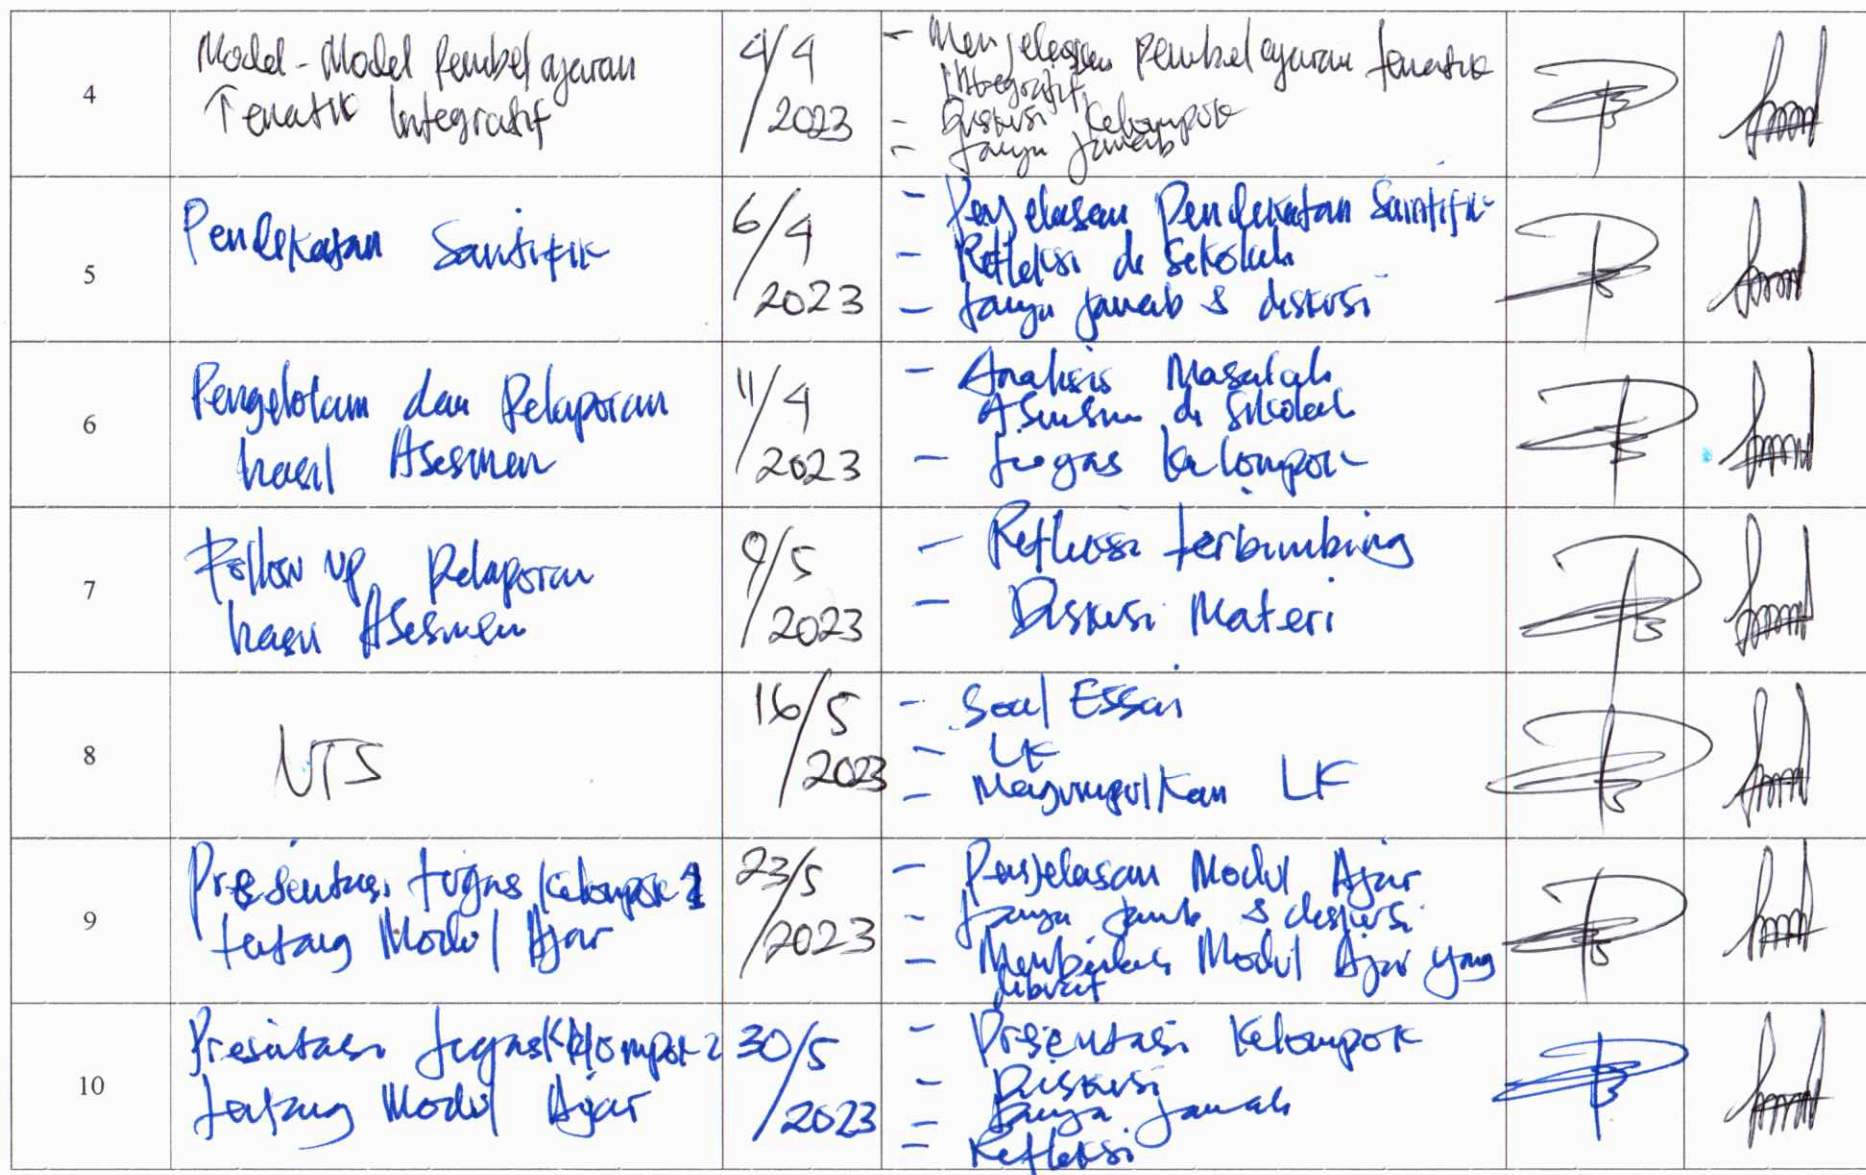 4
Model-Model Pembelajaran
Tematik Integratif
4/4
2023
- Menjelaskan pembelajaran tematik
Integratif
- Diskusi Kelompok
- Tanya Jawab
5
Pendekatan Saintifik
6/4
2023
- Penjelasan Pendekatan Saintifik
- Refleksi di Sekolah
- Tanya jawab & diskusi
6
Pengelolaan dan Pelaporan
hasil Asesmen
11/4
2023
- Analisis Masalah
Asesmen di Sekolah
- Tugas Kelompok
7
Follow up Pelaporan
hasil Asesmen
9/5
2023
- Refleksi terbimbing
- Diskusi Materi
8
UTS
16/5
2023
- Soal Essai
- LK
- Mengumpulkan LK
9
Presentasi tugas Kelompok 1
tentang Modul Ajar
23/5
2023
- Penjelasan Modul Ajar
- Tanya jawab & diskusi
- Modul Ajar yang
dibuat
10
Presentasi tugas Kelompok 2
tentang Modul Ajar
30/5
2023
- Presentasi Kelompok
- Diskusi
- Tanya Jawab
- Refleksi